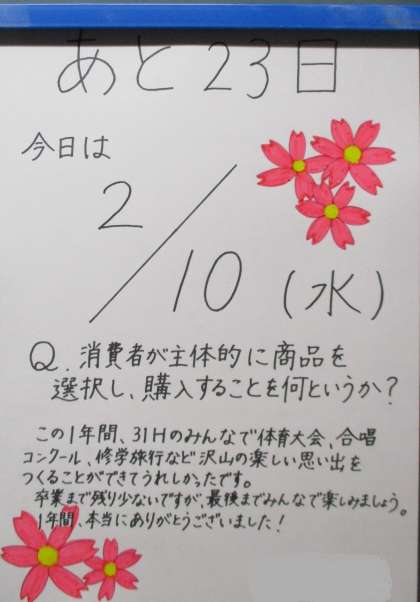 あと23日
今日は
2/10(水)
Q.消費者が主体的に商品を
選択し、購入することを何というか?
この1年間、31Hのみんなで体育大会、合唱
コンクール、修学旅行など沢山の楽しい思い出を
つくることができてうれしかったです。
卒業まで残り少ないですが、最後までみんなで楽しみましょう。
1年間、本当にありがとうございました!